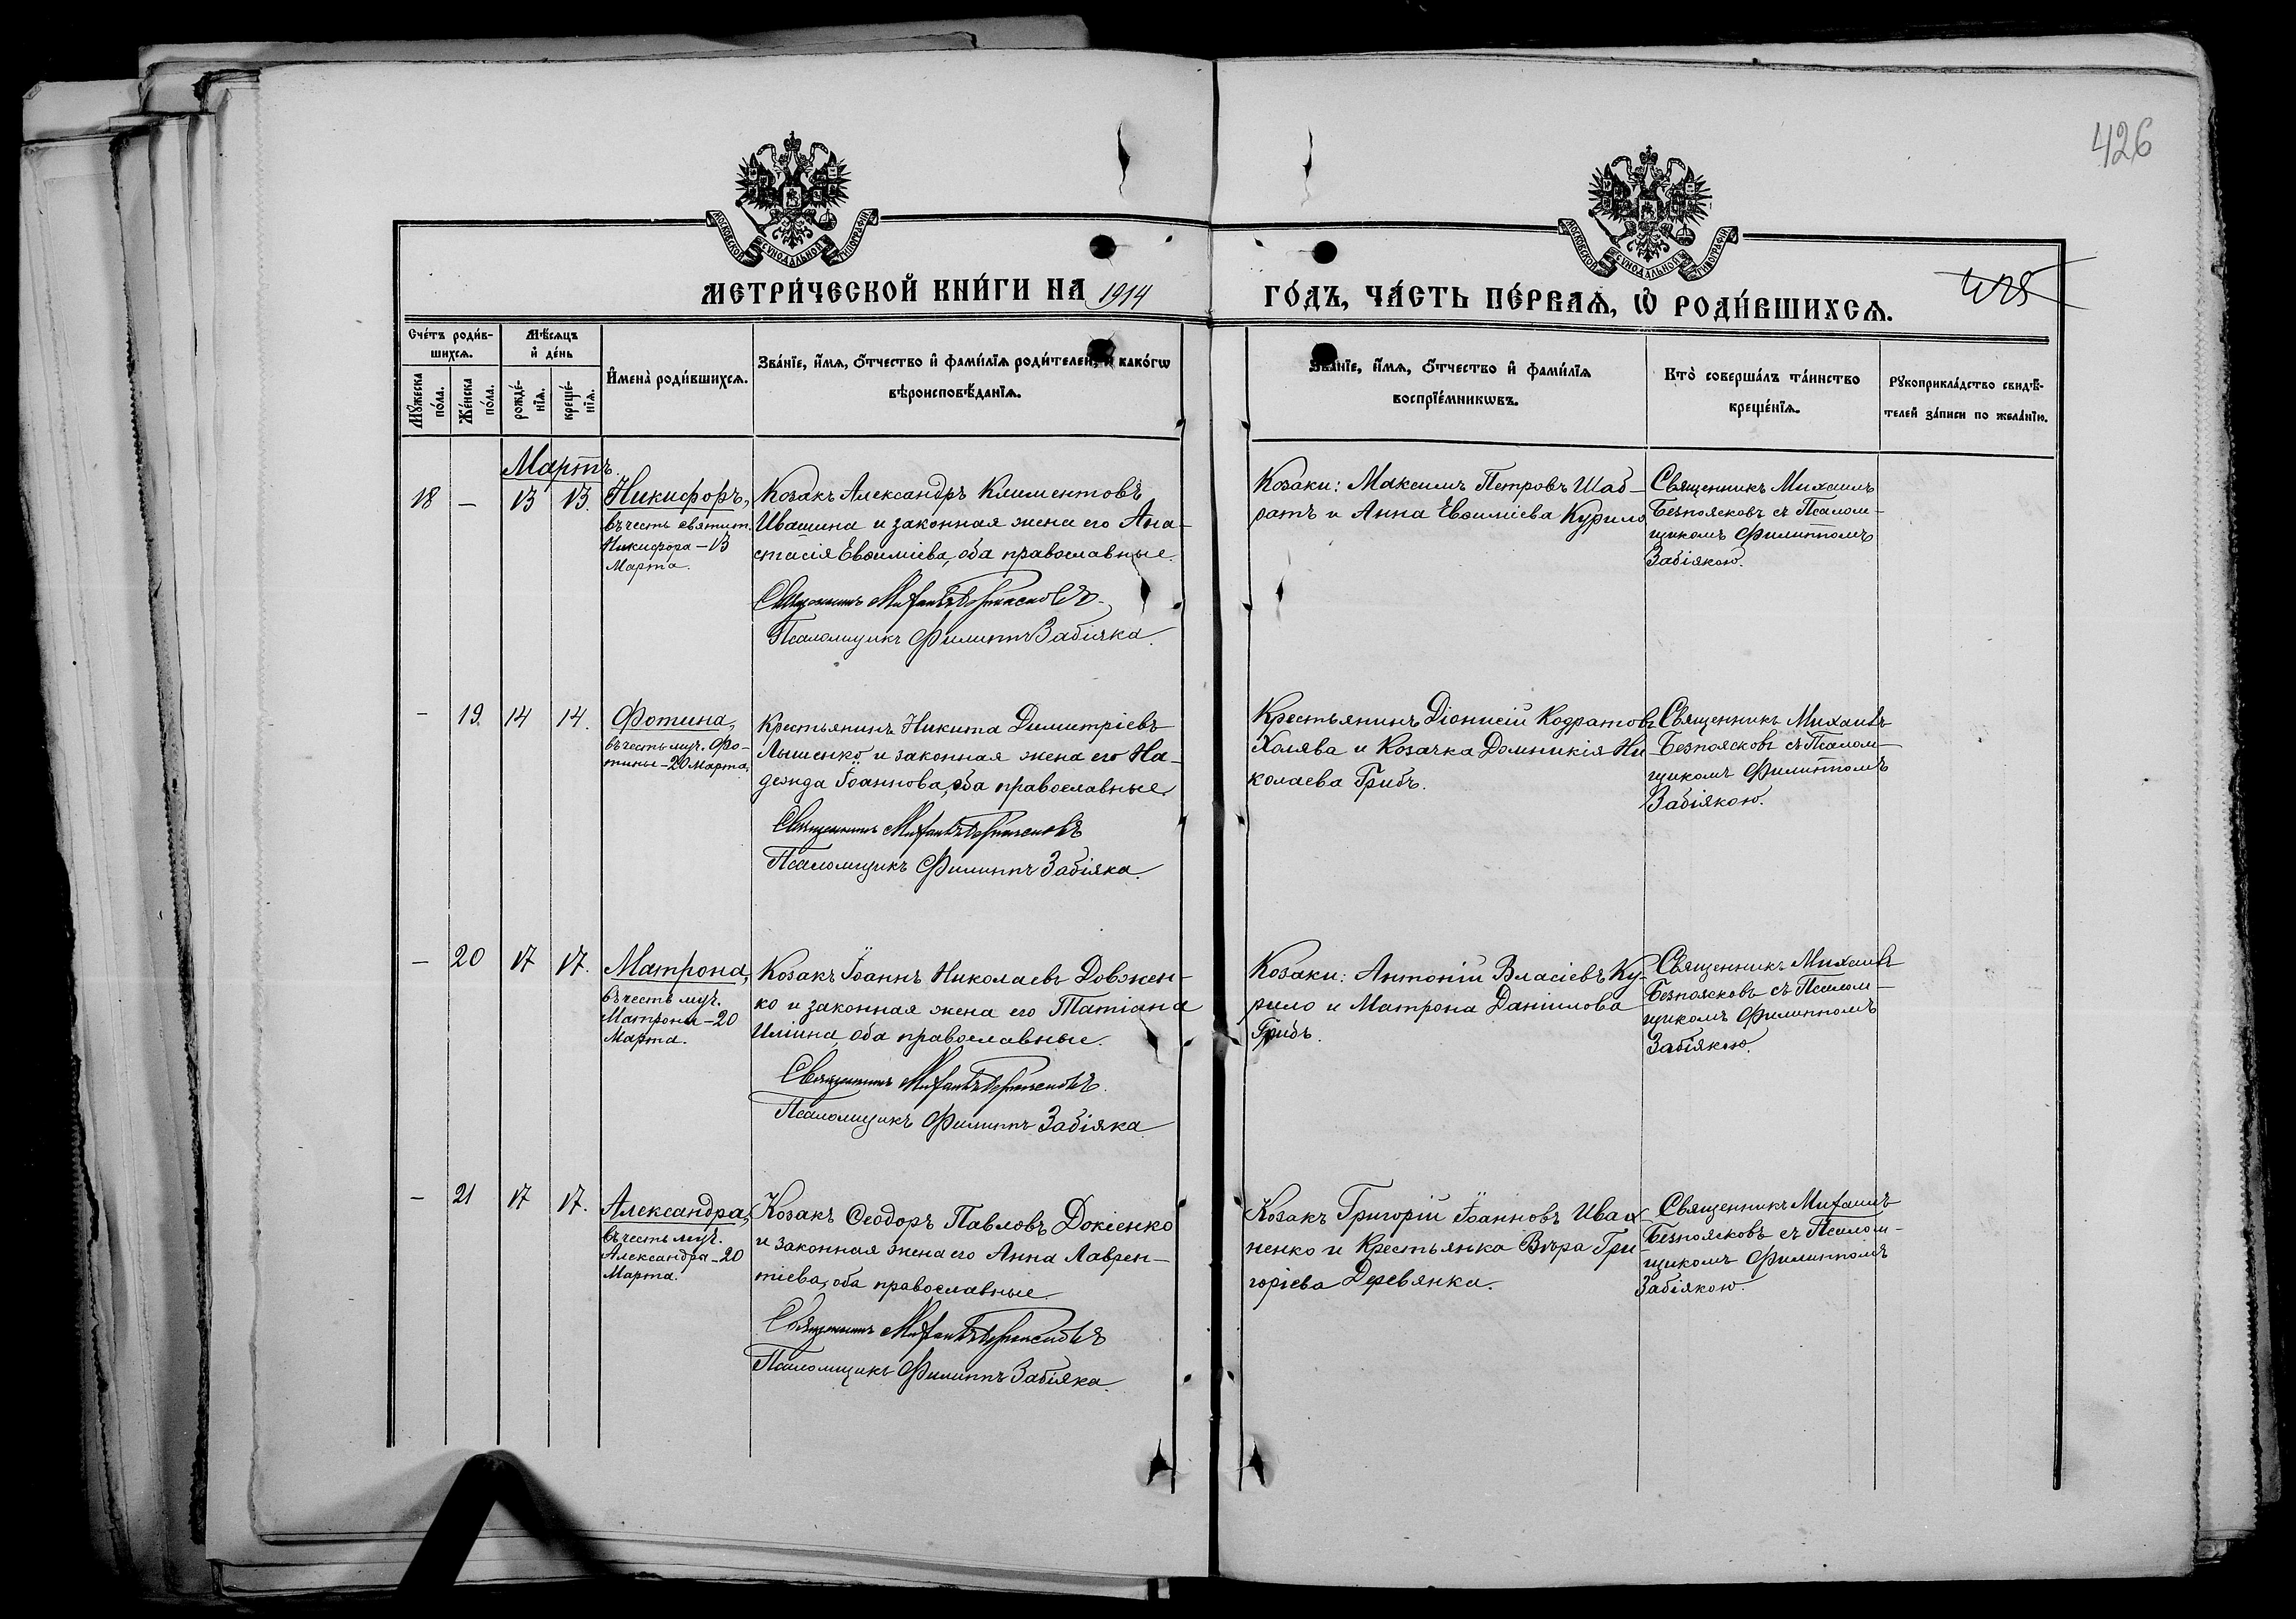 426
МОСКОВСКОЙ СУНОДАЛЬНОЙ ТИПОГРАФІИ
МОСКОВСКОЙ СУНОДАЛЬНОЙ ТИПОГРАФІИ
МЕТРИ́ЧЕСКОЙ КНИ́ГИ НА 1914
ГО́ДЪ, ЧА́СТЬ ПЕ́РВАѦ, Ѡ РОДИ́ВШИХСѦ.
425
Сче́тъ роди́в-
шихсѧ.
Мѣ́сѧцъ
и де́нь
Мꙋ́жеска
по́ла.
Же́нска
по́ла.
рожде́-
нїѧ.
креще́-
нїѧ.
Имена̀ роди́вшихсѧ.
Зва́нїе, и́мѧ, о́тчество и фами́лїѧ роди́телей, и како́гѡ
вѣроисповѣ́данїѧ.
Зва́нїе, и́мѧ, о́тчество и фами́лїѧ
воспрїе́мникѡвъ.
Кто̀ соверша́лъ та́инство
креще́нїѧ.
Рꙋкоприкла́дство свидѣ́-
телей за́писи по жела́нїю.
Мартъ.
18 – 13 13. Никифоръ,
въ честь святит.
Никифора – 13
Марта.
Козакъ Александръ Климентовъ
Ивашина и законная жена его Ана-
стасія Евѳиміева, оба православные.
Священникъ Михаилъ Безпоясковъ
Псаломщикъ Филиппъ Забіяка.
Козаки: Максимъ Петровъ Шаб-
ратъ и Анна Евѳиміева Курило
Священникъ Михаилъ
Безпоясковъ съ Псалом-
щикомъ Филиппомъ
Забіякою.
– 19. 14 14. Фотина,
въ честь муч. Фо-
тины – 20 Марта.
Крестьянинъ Никита Димитріевъ
Лышенко и законная жена его На-
дежда Іоаннова, оба православные.
Священникъ Михаилъ Безпоясковъ
Псаломщикъ Филиппъ Забіяка.
Крестьянинъ Діонисій Кодратовъ
Халява и Козачка Домникія Ни-
колаева Грибъ.
Священникъ Михаилъ
Безпоясковъ съ Псалом-
щикомъ Филиппомъ
Забіякою.
– 20 17 17. Матрона,
въ честь муч.
Матроны – 20
Марта.
Козакъ Іоаннъ Николаевъ Довжен-
ко и законная жена его Татіана
Иліина, оба православные.
Священникъ Михаилъ Безпоясковъ.
Псаломщикъ Филиппъ Забіяка
Козаки: Антоній Власіевъ Ку-
рило и Матрона Даніилова
Грибъ.
Священникъ Михаилъ
Безпоясковъ съ Псалом-
щикомъ Филиппомъ
Забіякою.
– 21 17 17. Александра,
въ честь муч.
Александра – 20
Марта.
Козакъ Ѳеодоръ Павловъ Докіенко
и законная жена его Анна Лаврен-
тіева, оба православные.
Священникъ Михаилъ Безпоясковъ
Псаломщикъ Филиппъ Забіяка.
Козакъ Григорій Іоанновъ Иван
ненко и Крестьянка Вѣра Гри-
горіева Деревянка.
Священникъ Михаилъ
Безпоясковъ съ Псалом-
щикомъ Филиппомъ
Забіякою.